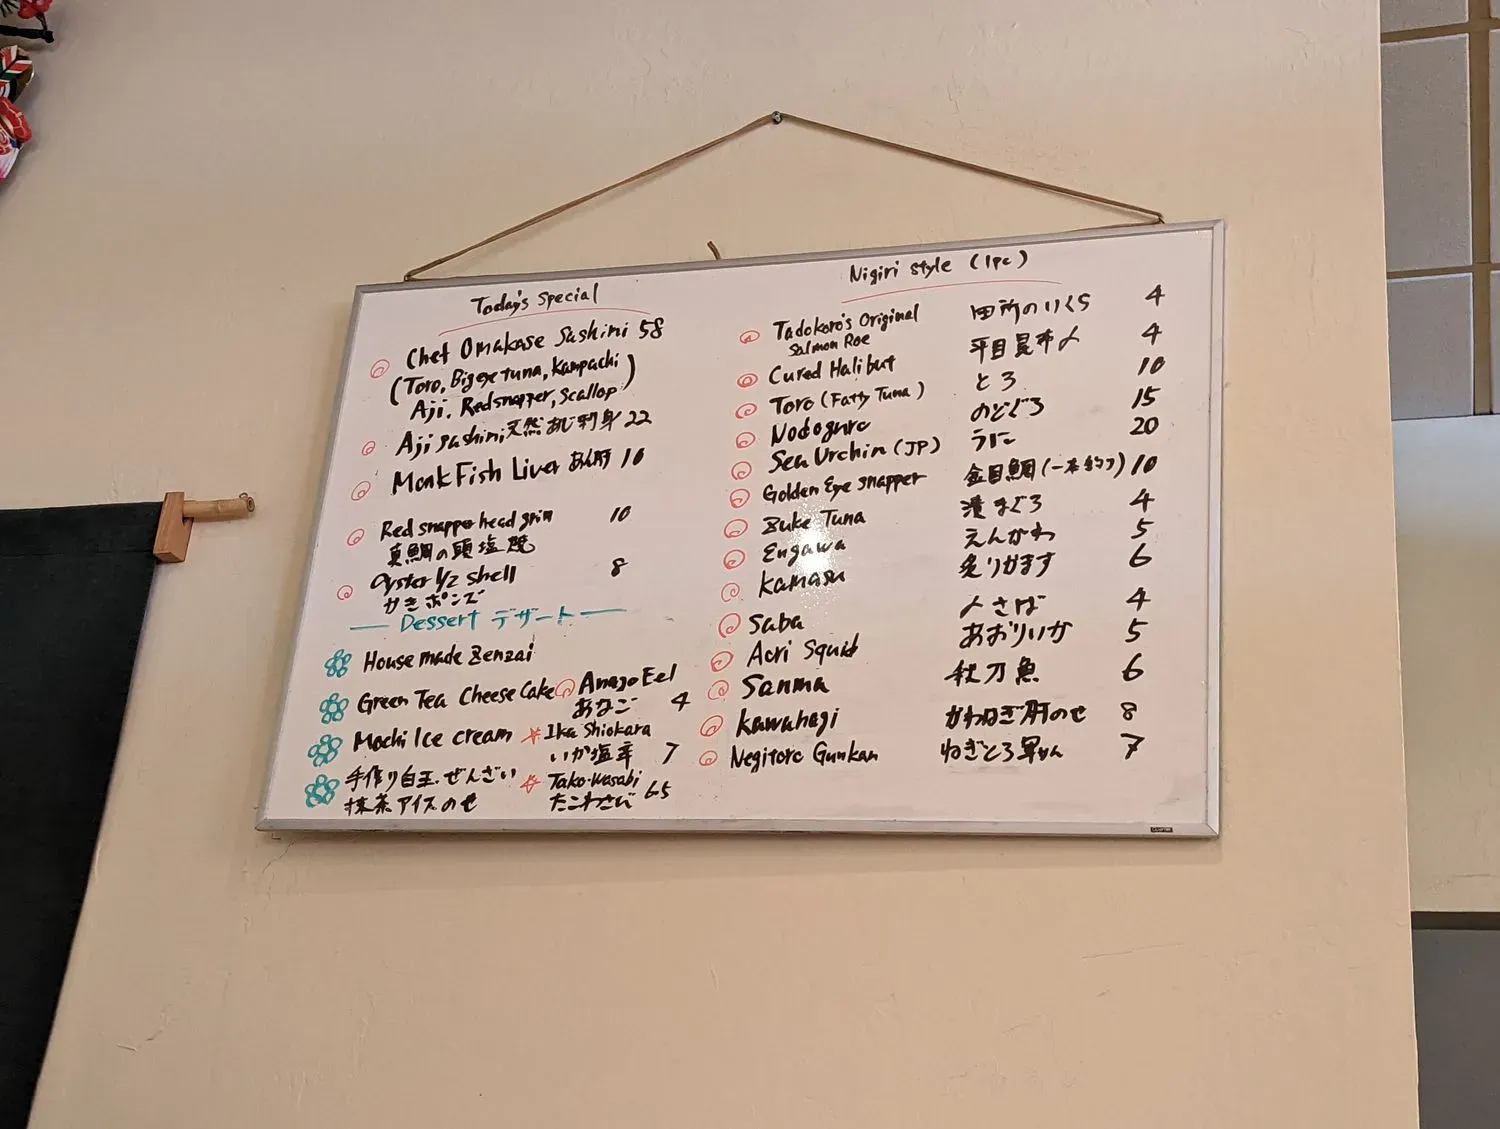 Today's Special
Chef Omakase Sashimi 58
(Toro, Bigeye tuna, Kampachi
Aji, Redsnapper, Scallop)
Aji sashimi 天然あじ刺身 22
Monk Fish Liver あん肝 10
Red snapper head grill 10
真鯛の頭塩焼
Oyster 1/2 shell 8
かきポンズ
Dessert デザート
House made Zenzai
Green Tea Cheese Cake
Mochi Ice cream
手作り白玉ぜんざい
抹茶アイスのせ
Anago Eel
あなご 4
Ika Shiokara
いか塩辛 7
Tako-Wasabi
たこわさび 6.5
Nigiri style (1pc)
Tadokoro's Original 田所のいくら 4
Salmon Roe
Cured Halibut 平目昆布〆 4
Toro (Fatty Tuna) とろ 10
Nodoguro のどぐろ 15
Sea Urchin (JP) うに 20
Golden Eye Snapper 金目鯛 (一本釣り) 10
Zuke Tuna 漬まぐろ 4
Engawa えんがわ 5
Kamasu 炙りかます 6
Saba 〆さば 4
Aori Squid あおりいか 5
Sanma 秋刀魚 6
Kawahagi かわはぎ肝のせ 8
Negitoro Gunkan ねぎとろ軍かん 7